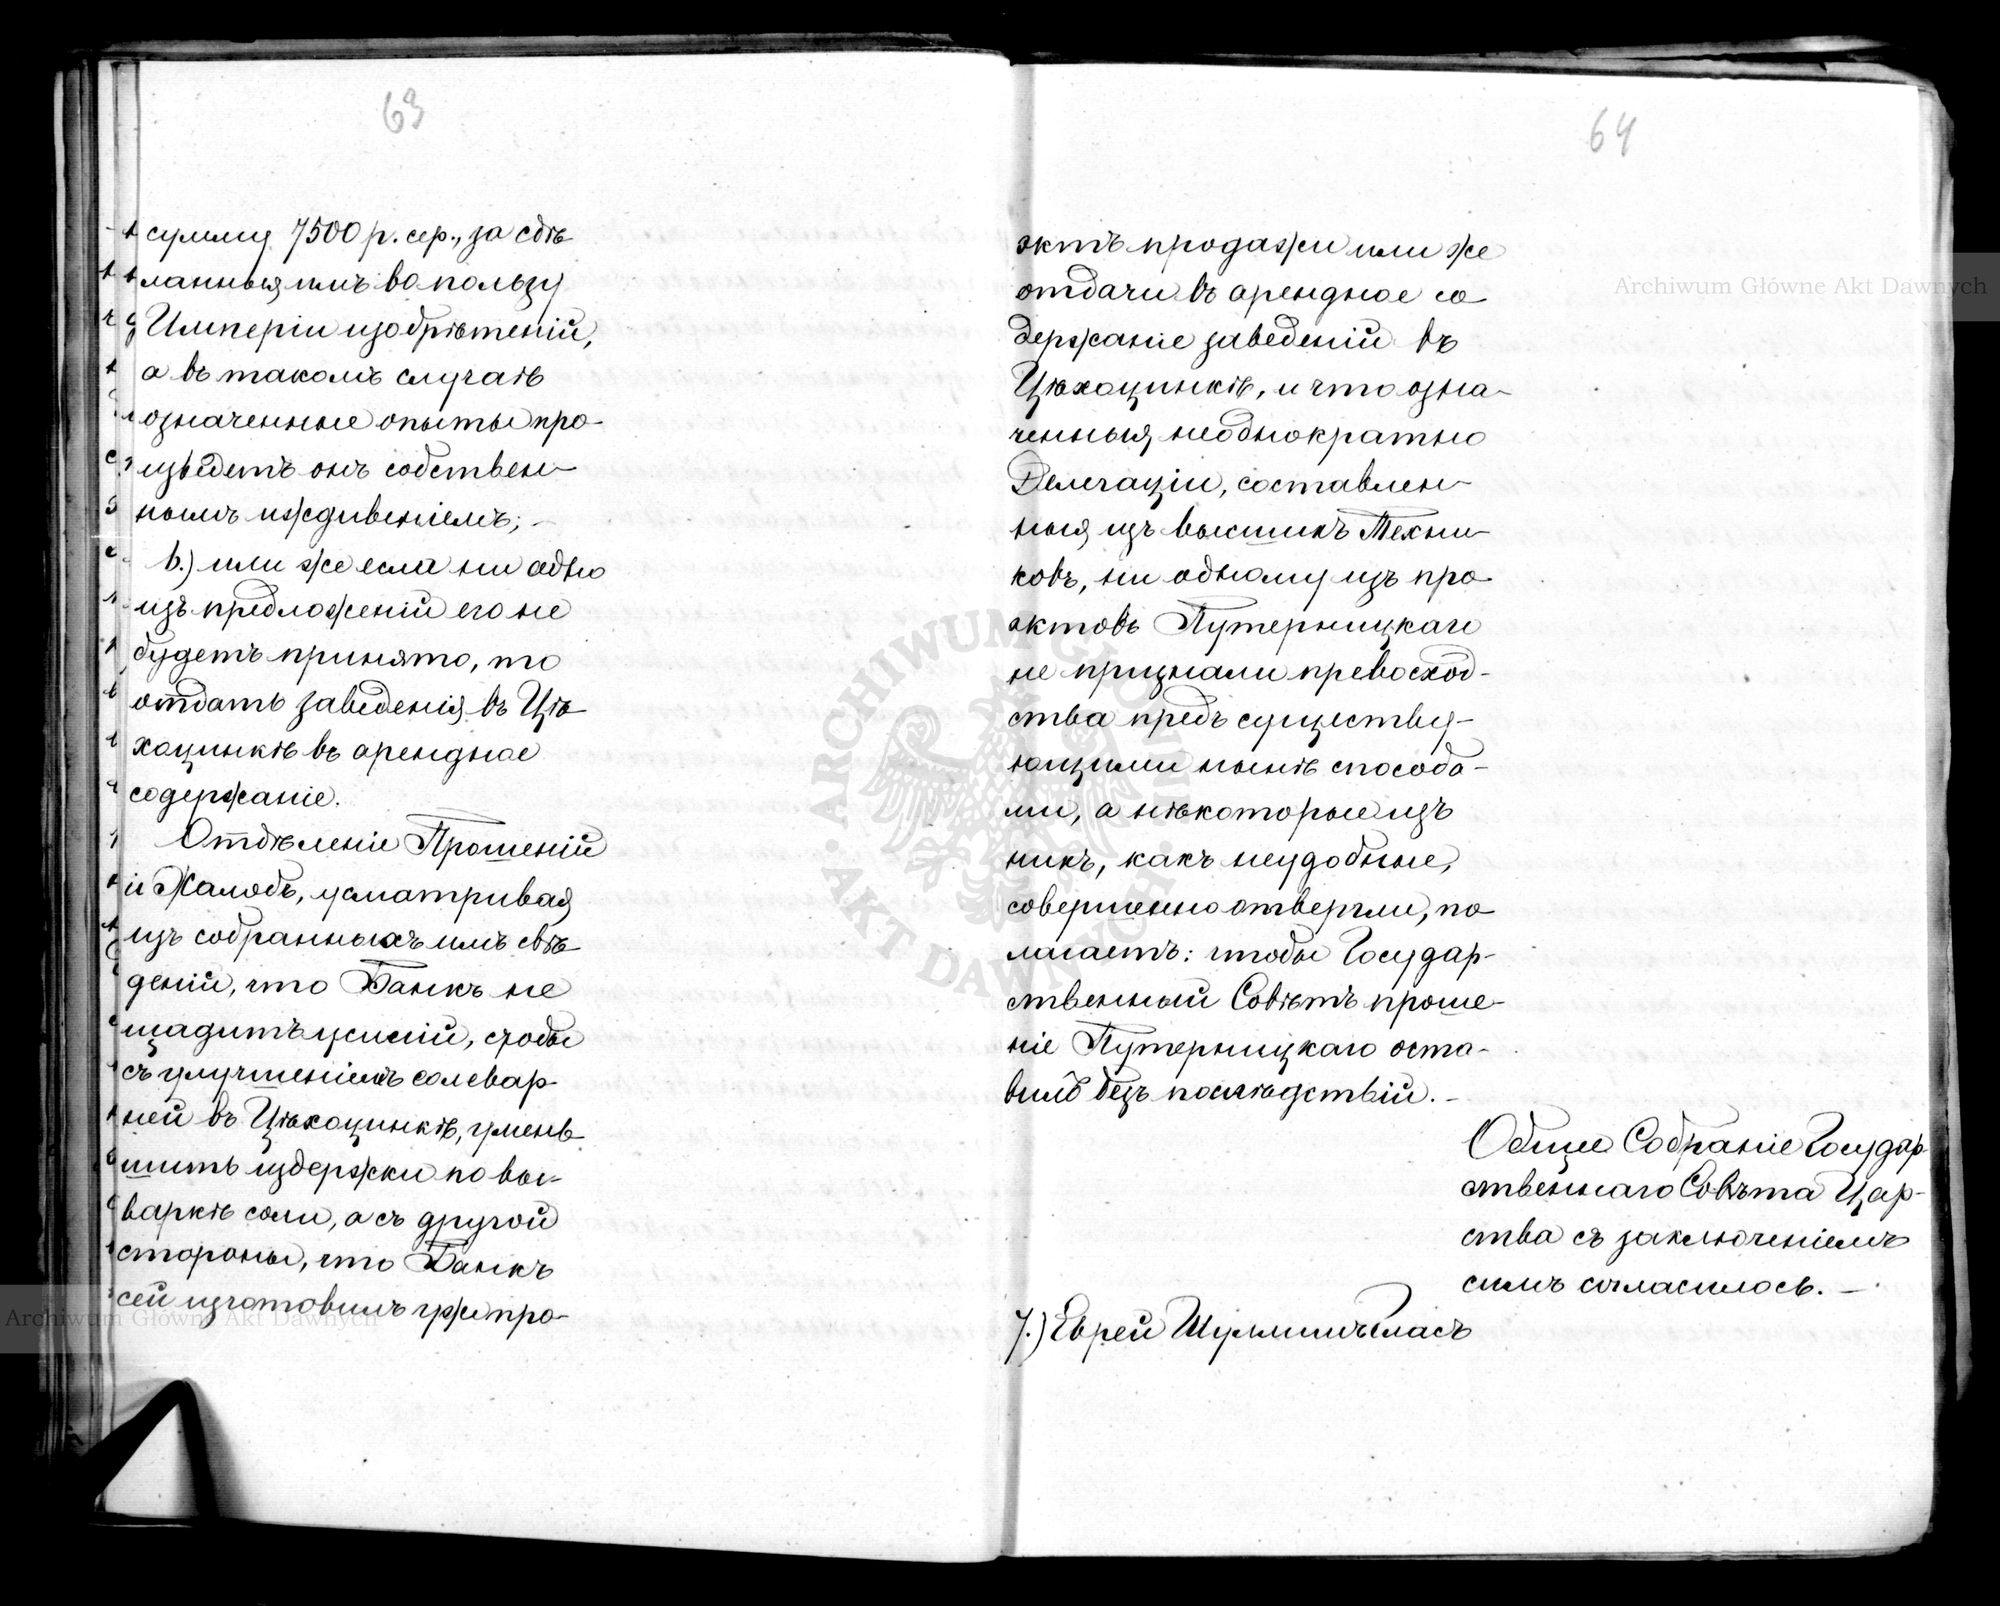 63
сумму 7500 р. сер., за сдѣ
ланныя имъ во пользу
Имперіи изобрѣтеній,
а въ такомъ случаѣ
означенные опыты про-
изведетъ онъ собствен-
нымъ иждивеніемъ; -
b.) или же если ни одно
изъ предложеній его не
будетъ принято, то
отдать заведенія въ Цѣ
хоцинкѣ въ арендное
содержаніе.
Отдѣленіе Прошеній
и Жалобъ, усматривая
изъ собранныхъ имъ свѣ-
деній, что Банкъ не
щадитъ усилій, чтобы
съ улучшеніемъ солевар-
ней въ Цѣхоцинкѣ, умень
шить издержки по вы-
варкѣ соли, а съ другой
стороны, что Банкъ
сей изготовилъ уже про-
64
эктъ продажи или же
отдачи въ арендное со
держаніе заведеній въ
Цѣхоцинкѣ, и что озна-
ченныя неоднократно
Делегаціи, составлен-
ныя изъ высшихъ Техни-
ковъ, ни одному изъ про
эктовъ Путерницкаго
не признали превосход-
ства предъ существу-
ющими нынѣ способа-
ми, а нѣкоторые изъ
нихъ, какъ неудобные,
совершенно отвергли, по
лагаетъ: чтобы Государ-
ственный Совѣтъ проше-
ніе Путерницкаго оста-
вилъ безъ послѣдствій. -
Общее Собраніе Государ-
ственнаго Совѣта Цар-
ства съ заключеніемъ
симъ согласилось. -
7.) Еврей Шульимъ Гласъ
Archiwum Główne Akt Dawnych
Archiwum Główne Akt Dawnych
ARCHIWUM GŁÓWNE · AKT DAWNYCH ·